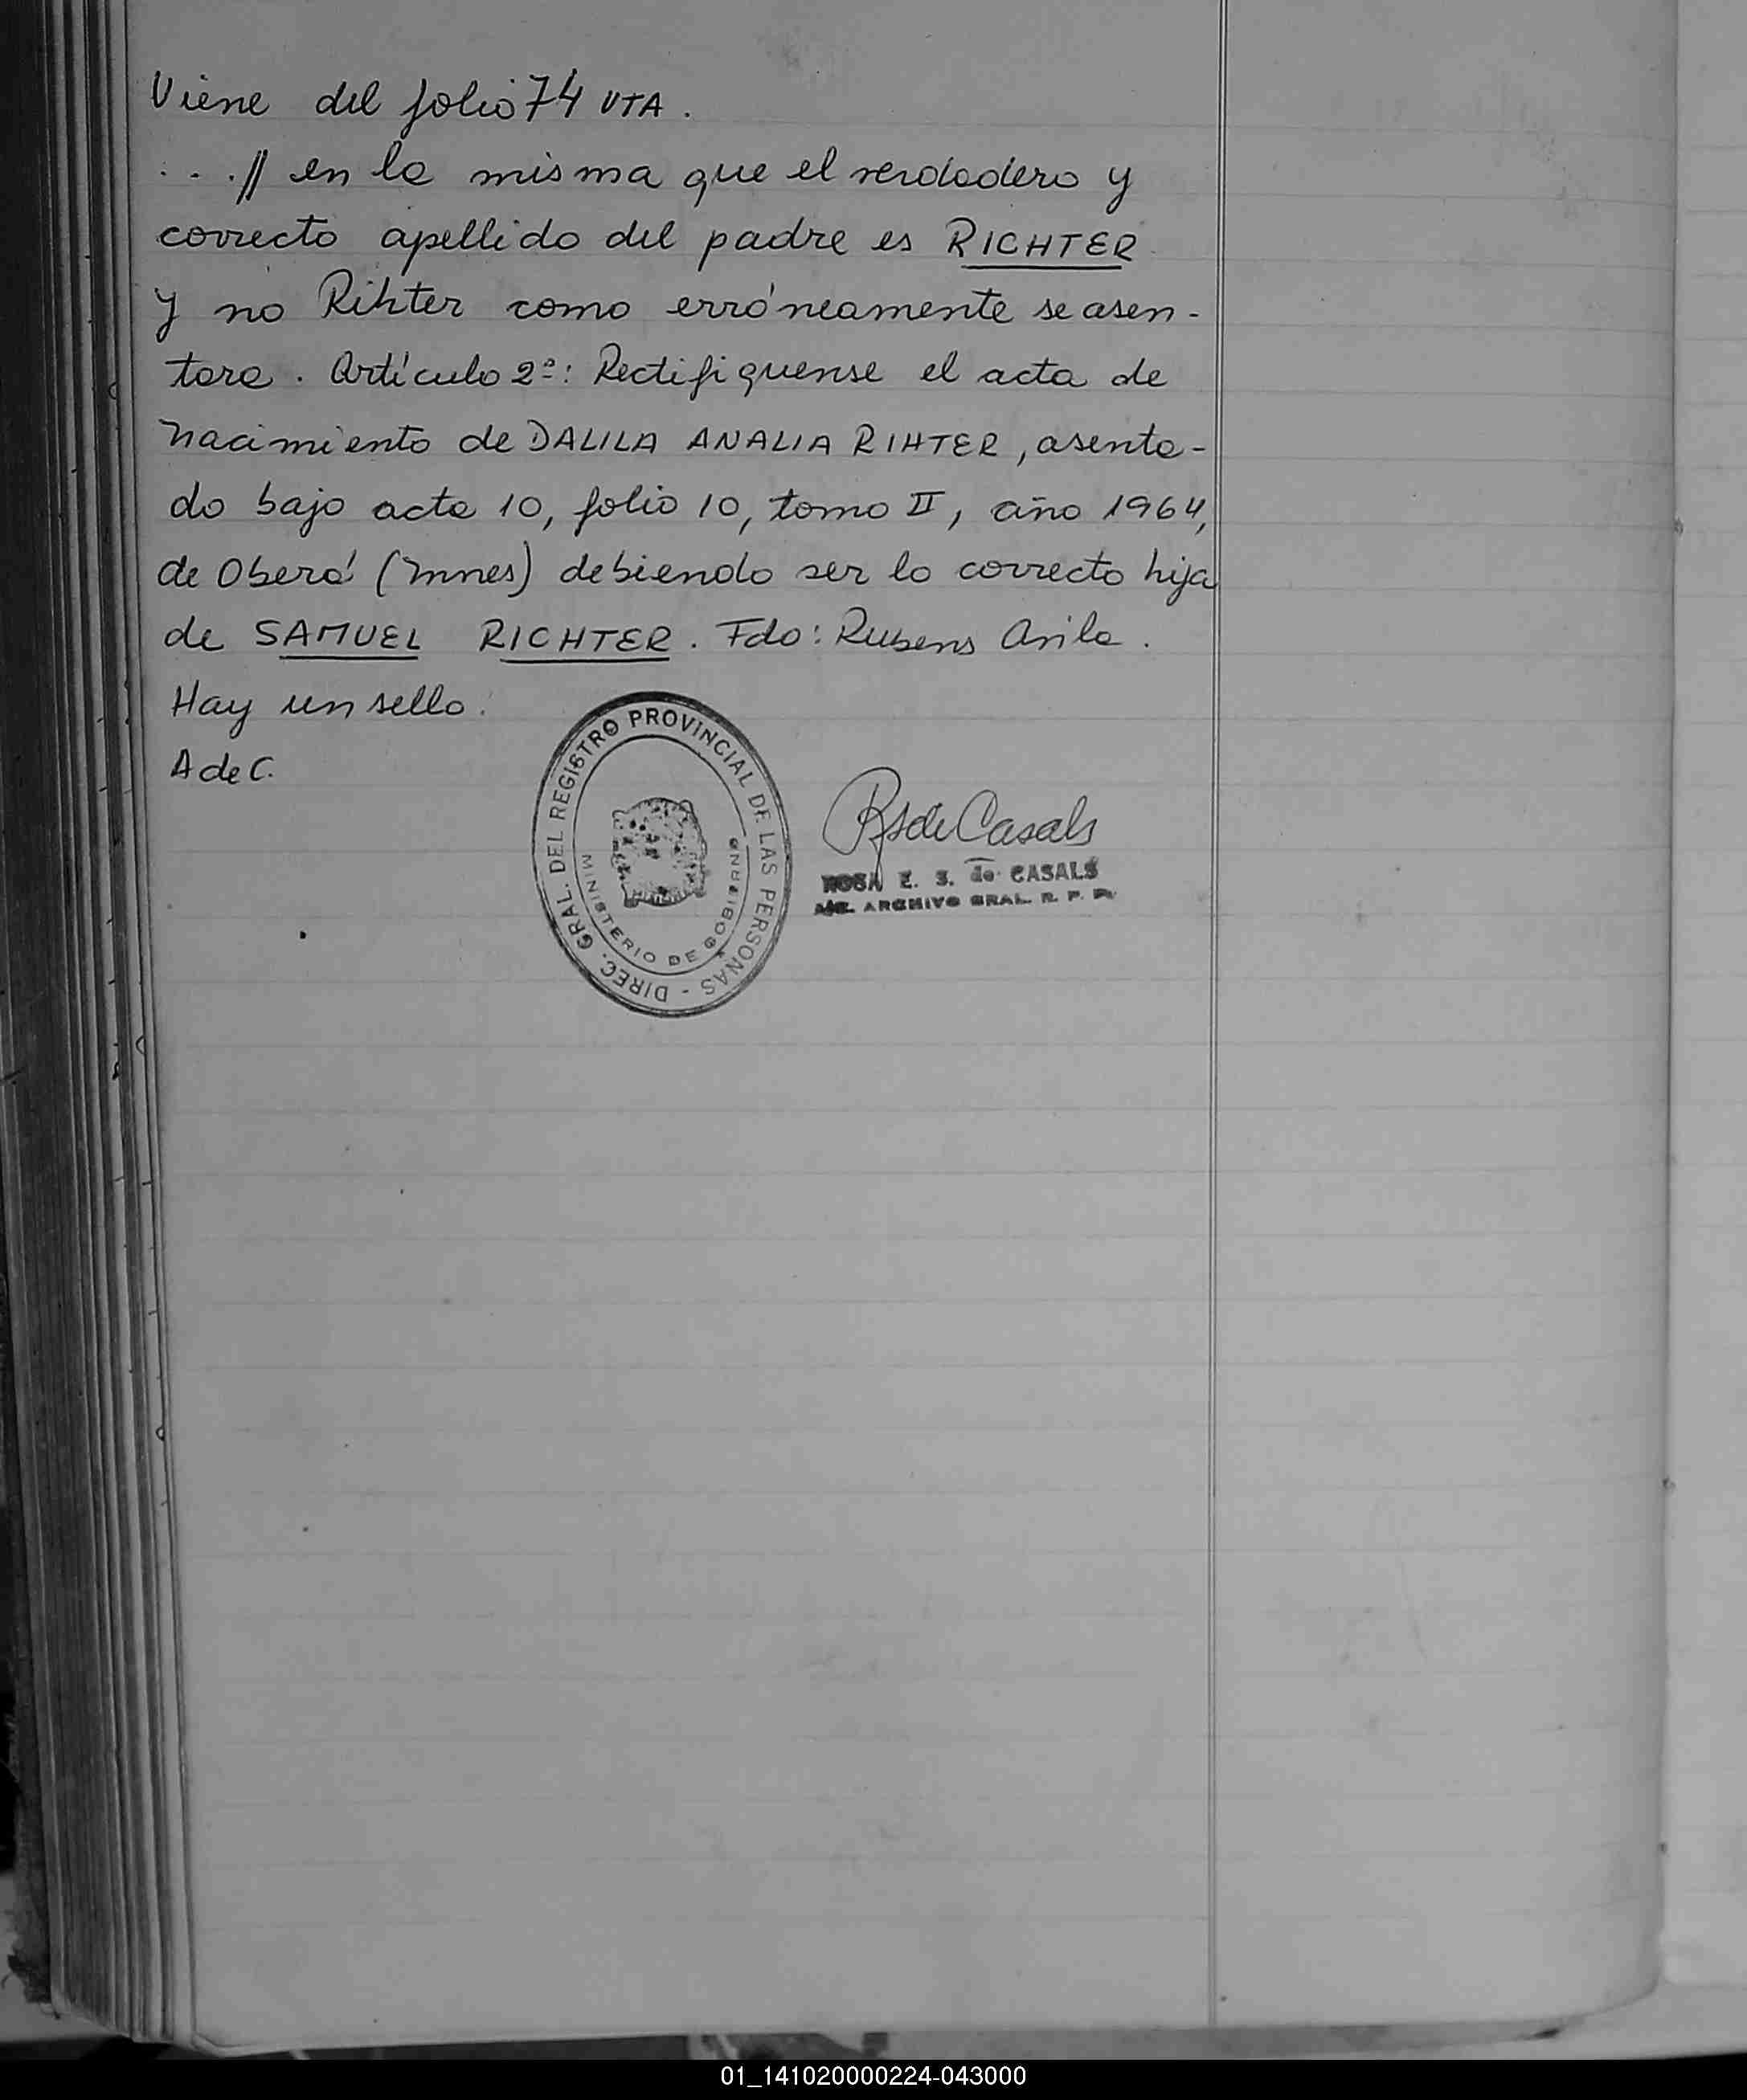 Viene del folio 74 VTA.
...// en la misma que el verdadero y
correcto apellido del padre es RICHTER
y no Rihter como erróneamente se asen-
tara. Artículo 2º: Rectifiquense el acta de
nacimiento de DALILA ANALIA RIHTER, asenta-
do bajo acta 10, folio 10, tomo II, año 1964,
de Oberá (Mnes) debiendo ser lo correcto hija
de SAMUEL RICHTER. Fdo: Rubens Avila.
Hay un sello.
A de C.
DIREC. GRAL. DEL REGISTRO PROVINCIAL DE LAS PERSONAS -
MINISTERIO DE GOBIERNO
RSde Casals
ROSA E. S. de CASALS
ARCHIVO GRAL. R. P. P.
01_141020000224-043000